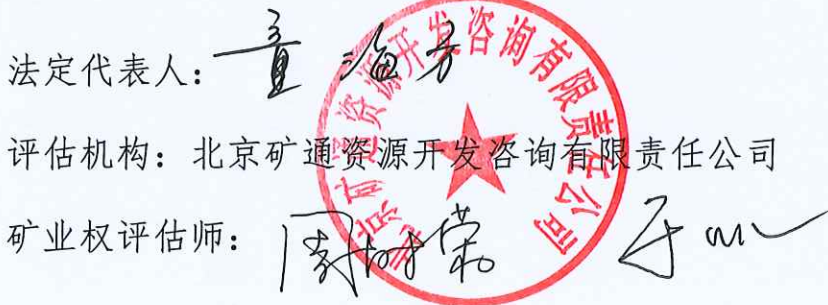 法定代表人：
评估机构：北京矿通资源开发咨询有限责任公司
矿业权评估师：
北京矿通资源开发咨询有限责任公司